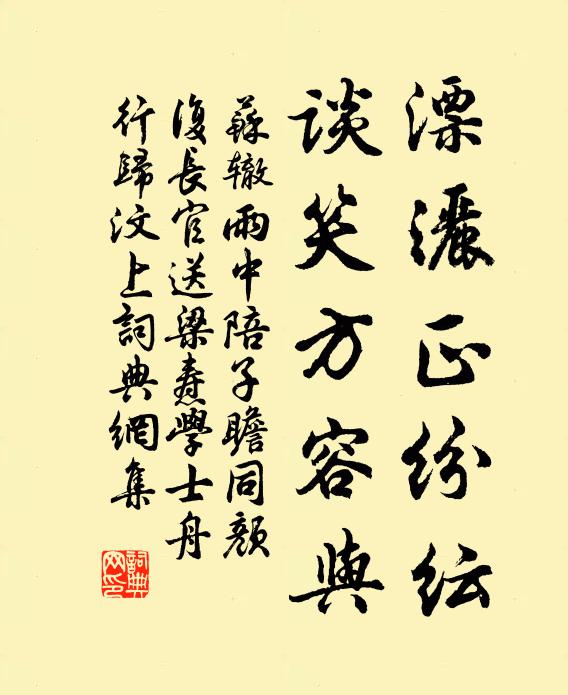 漂灑正紛紜
談笑方容與
蘇轍雨中陪子瞻同顏
復長官送梁燾學士舟
行歸汶上詞典網集
詞典
网印